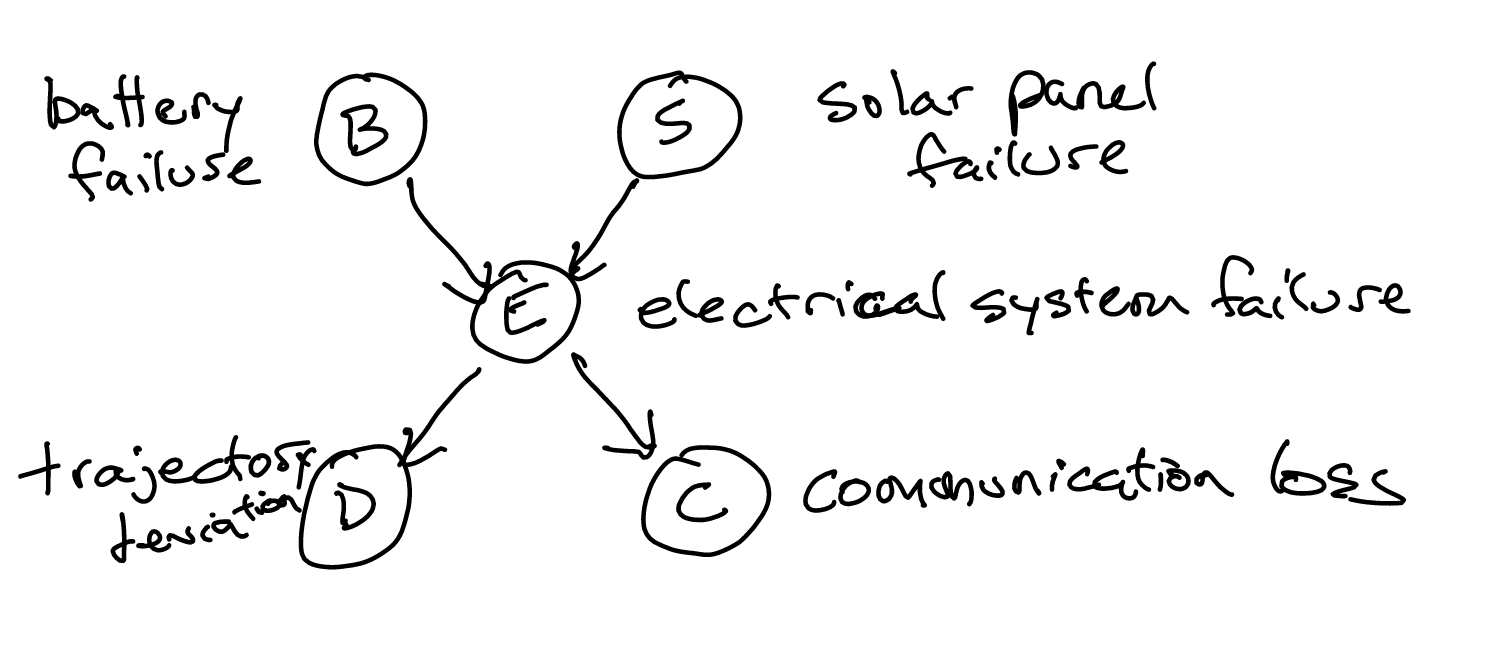 battery
failure
B
S
solar panel
failure
E
electrical system failure
trajectory
deviation
D
C
communication loss